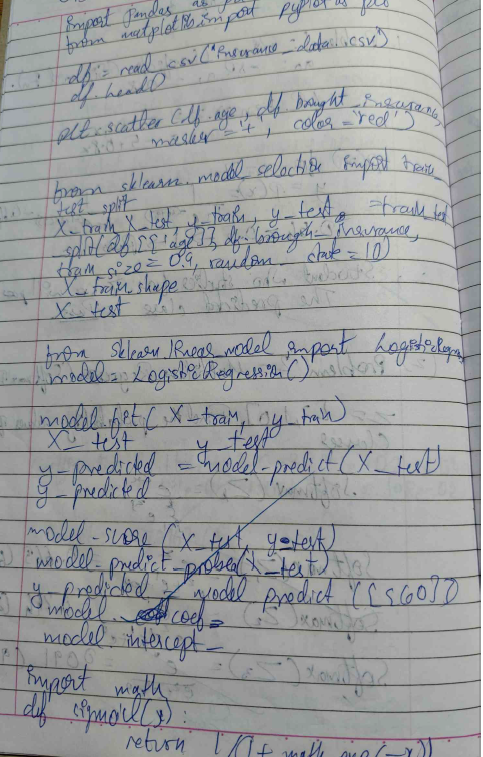 import Pandas as
from matplotlib import pyplot as plt
df = read csv("insurance_data.csv")
df head()
plt. scatter (df. age, df. bought_insurance,
marker = '+', color = 'red')
from sklearn. model_selection import train_
test split
X_train, X_test, y_train, y_test = train_test
split(df[['age']], df.brough_insurance,
train_size = 0.9, random state = 10)
X_train.shape
X_test
from sklearn linear_model import LogisticRegre
model LogisticRegression()
model fit (X_train, y_train)
X_test y_test
y_predicted = model-predict(X_test)
y_predicted
model-score (X_test, y-test)
model-predict-proba(X_test)
y_predicted = model predict ([[560]])
model. coef_
model. intercept_
import math
def sigmoid(x):
return 1/(1+ math exp(-x))